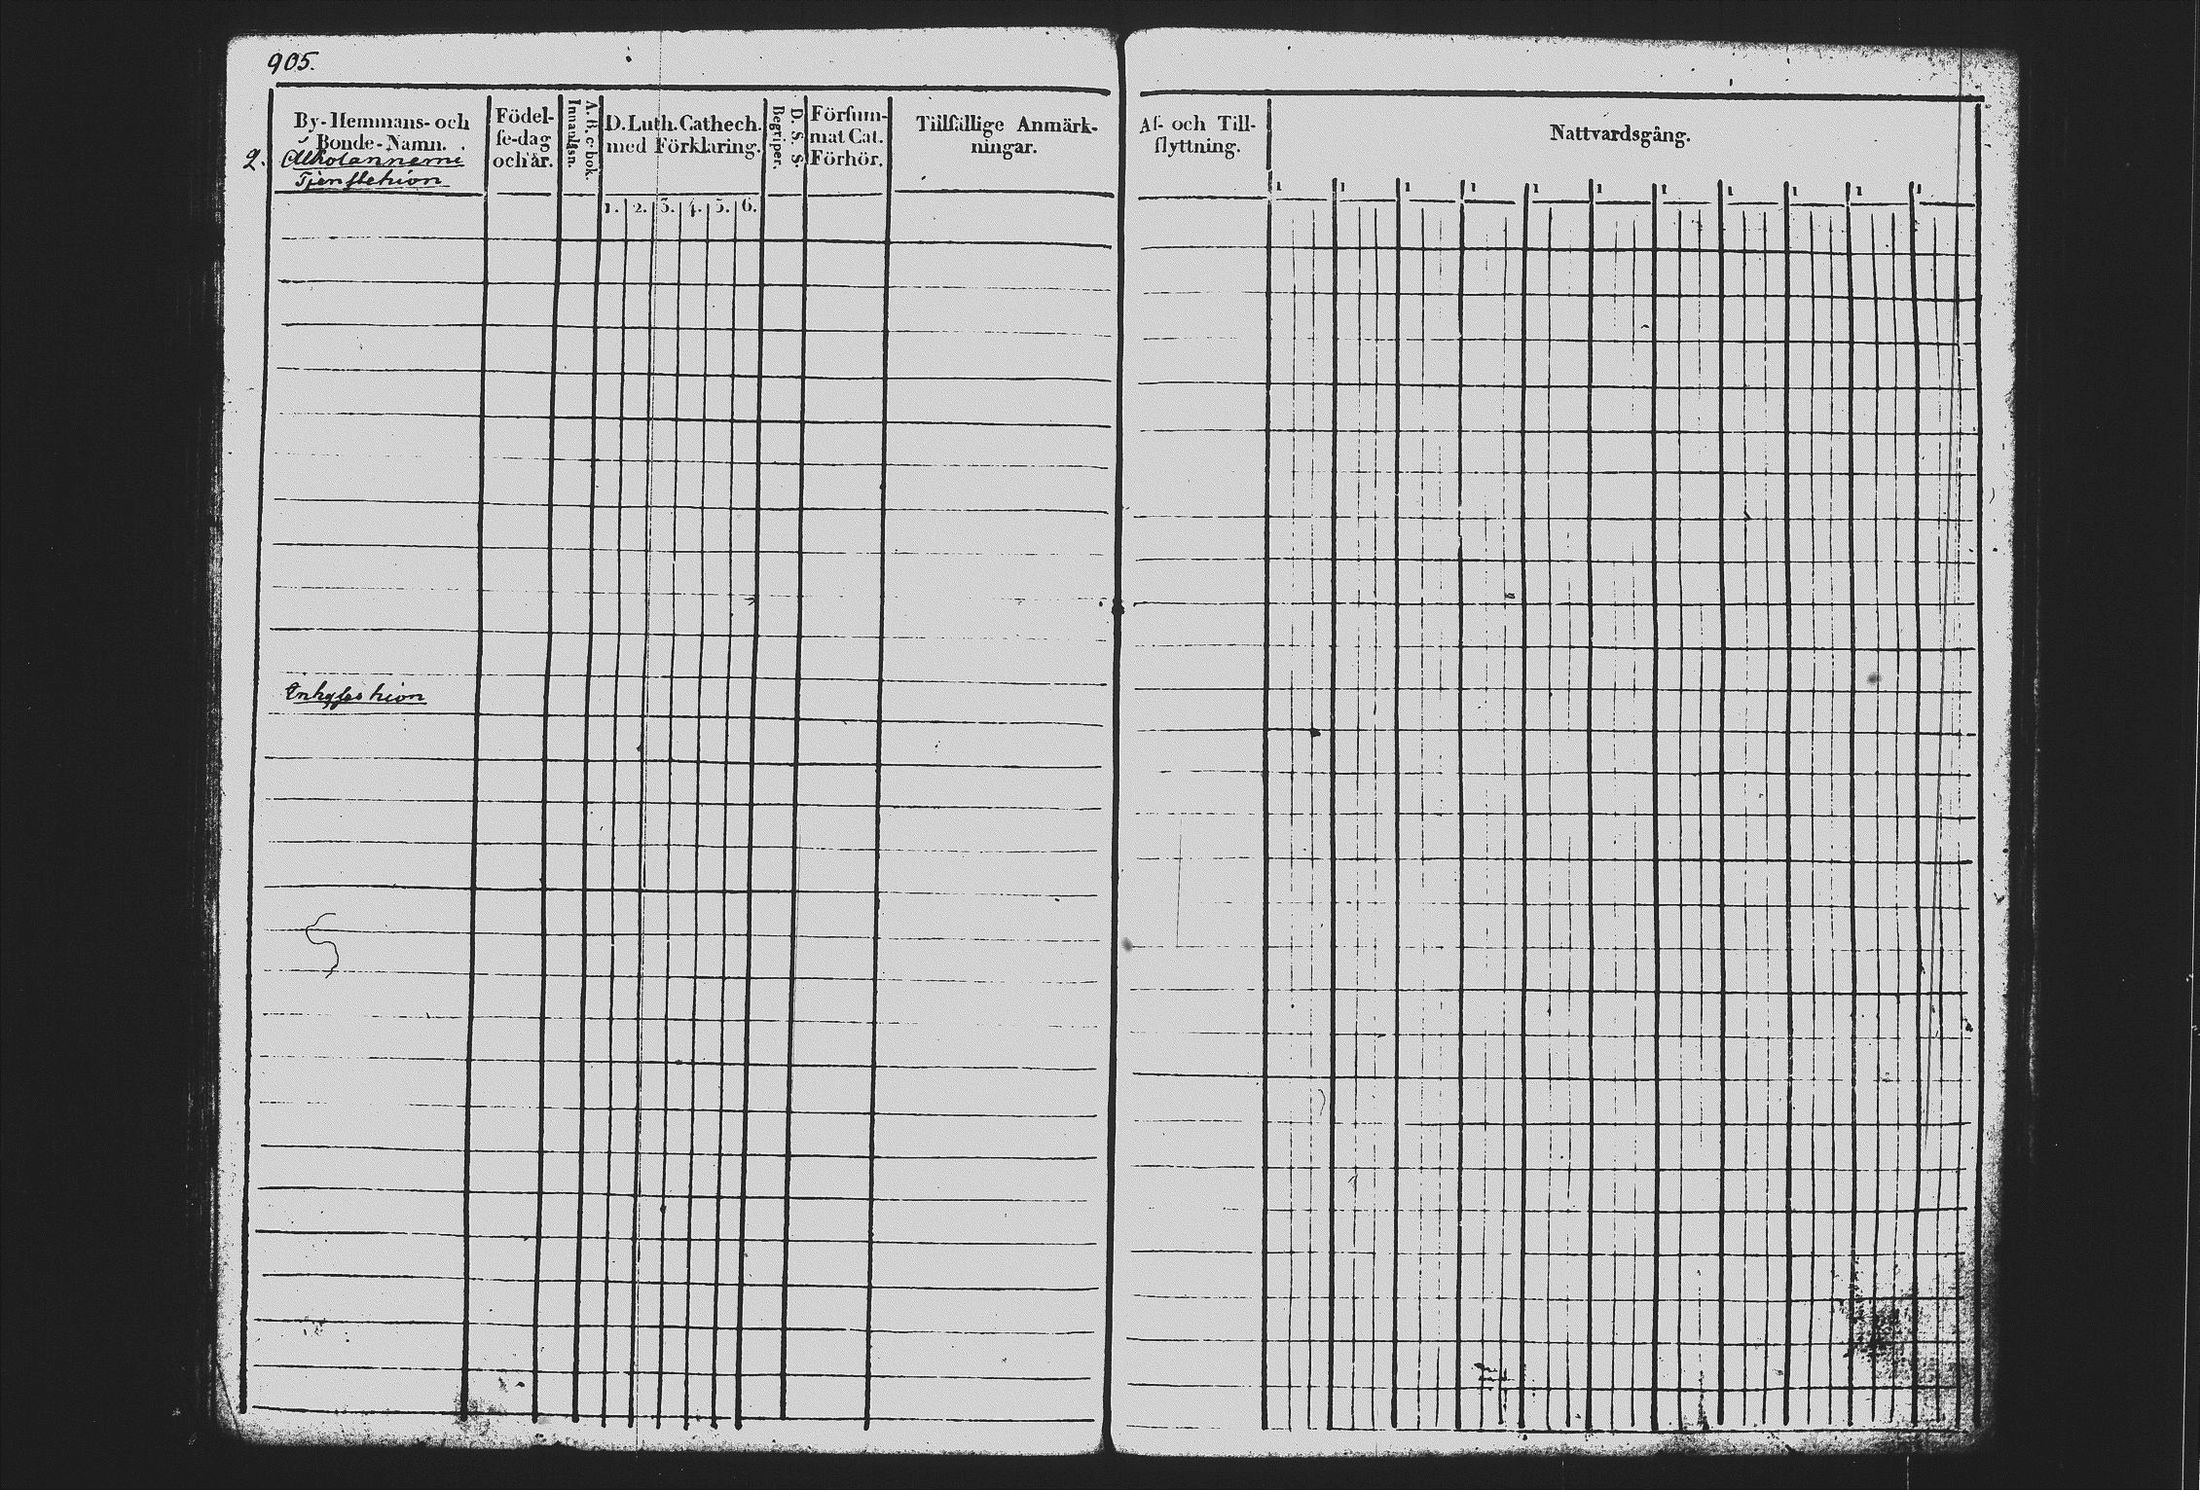 905.
By-Hemmans- och
Bonde-Namn.
2.
Tjenstehion
Födel-
se-dag
och år.
A. B. c-bok.
Innanläsn.
D. Luth. Cathech.
med Förklaring.
1. 2. 3. 4. 5. 6.
D. S. S.
Begriper.
Försum-
mat Cat.
Förhör.
Tillfällige Anmärk-
ningar.
Inhyses hion
Af- och Till-
flyttning.
Nattvardsgång.
1 1 1 1 1 1 1 1 1 1 1